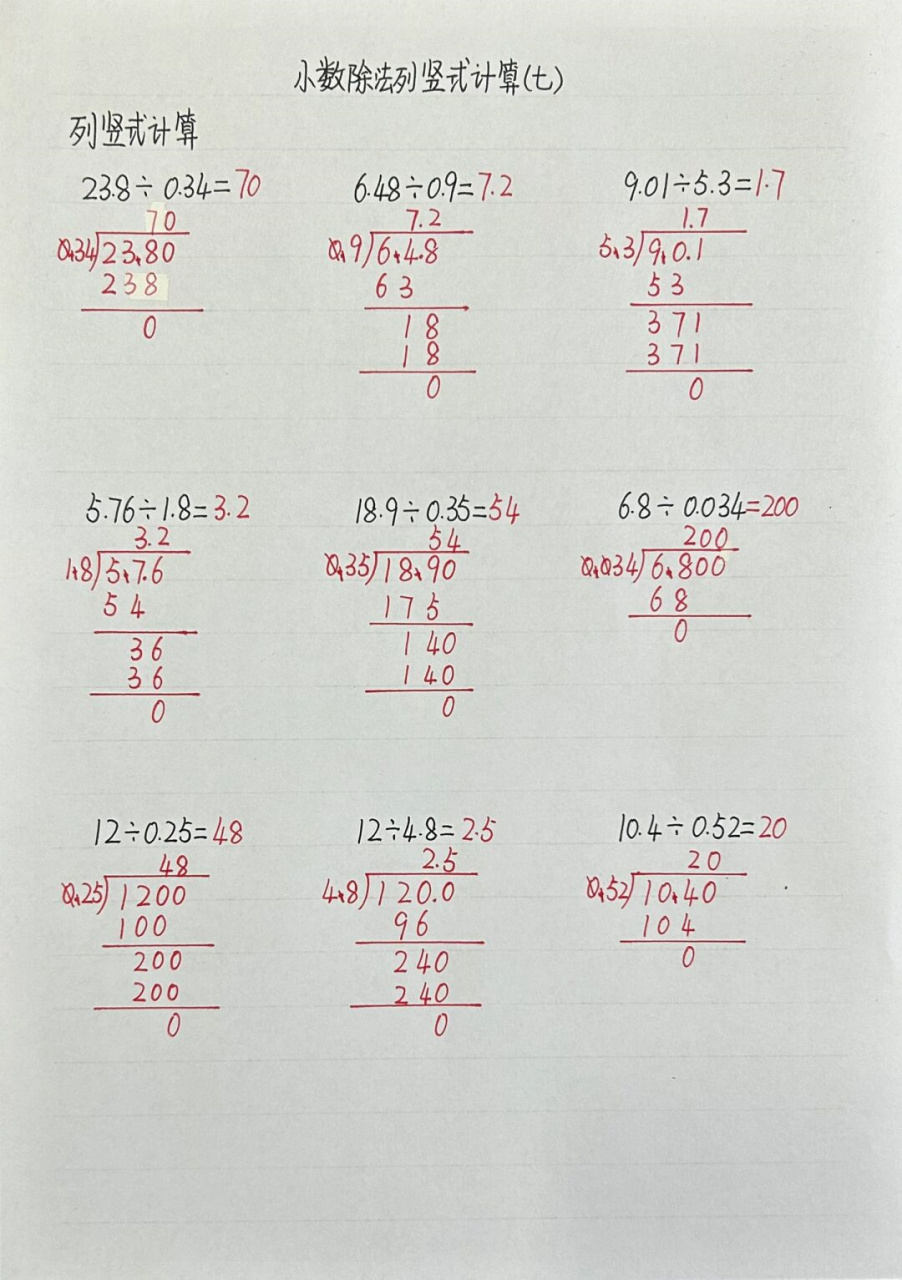 小数除法列竖式计算(七)
列竖式计算
23.8÷0.34=70 6.48÷0.9=7.2 9.01÷5.3=1.7
70 7.2 1.7
0.34 23.80 0.9 6.4.8 5.3 9.0.1
238 63 53
0 18 371
18 371
0 0
5.76÷1.8=3.2 18.9÷0.35=54 6.8÷0.034=200
3.2 54 200
1.8 5.7.6 0.35 18.90 0.034 6.800
54 175 68
36 140 0
36 140
0 0
12÷0.25=48 12÷4.8=2.5 10.4÷0.52=20
48 2.5 20
0.25 1200 4.8 120.0 0.52 10.40
100 96 104
200 240 0
200 240
0 0